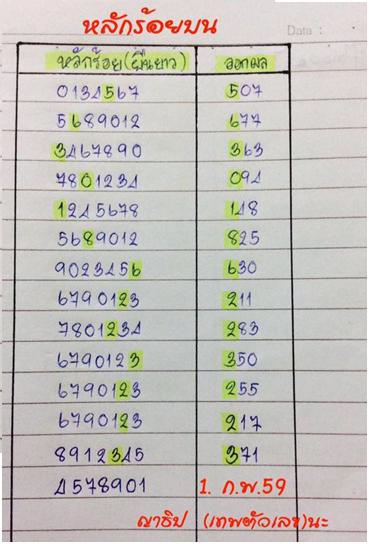 หลักร้อยบน
Data :
หลักร้อย(ยืนยาว) ออกผล
0134567 507
5689012 677
3467890 363
7801234 094
1245678 148
5689012 825
9023456 630
6790123 211
7801234 283
6790123 350
6790123 255
6790123 217
8912345 371
4578901 1. ก.พ.59
ญาธิป (เทพตัวเลข)นะ